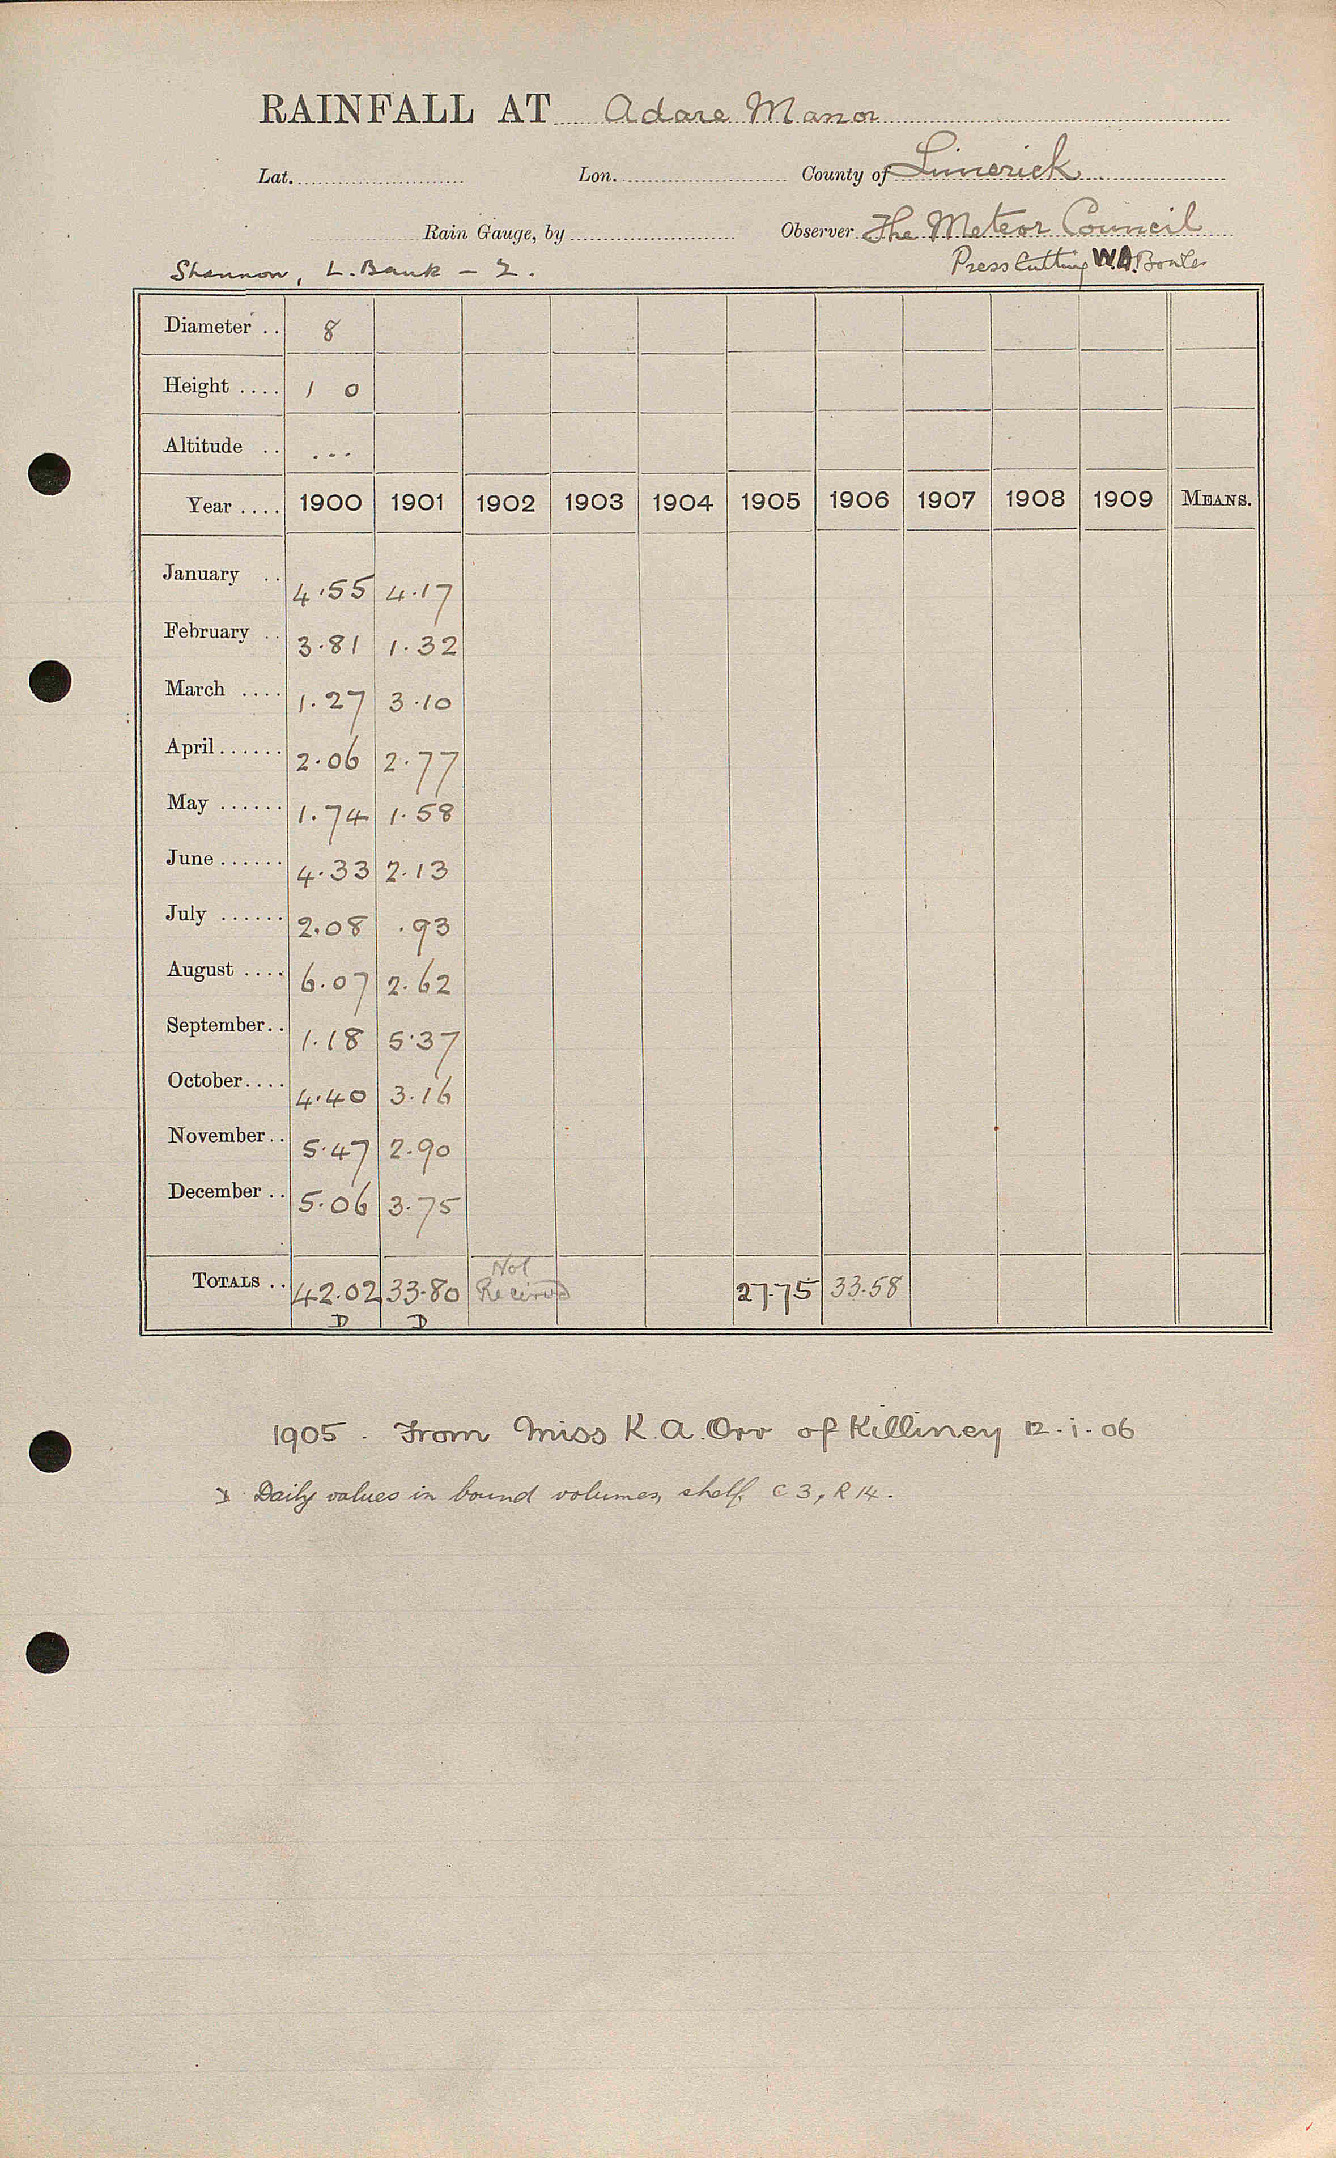 RAINFALL AT Adare Manor
Lat. Lon. County of Limerick
Rain Gauge, by Observer The Meteor Council
Shannon, L. Bank - 2. Press Cutting W.A. Bowles
Diameter .. 8
Height .... 1 0
Altitude .. ...
Year .... 1900 1901 1902 1903 1904 1905 1906 1907 1908 1909 MEANS.
January .. 4.55 4.17
February .. 3.81 1.32
March .... 1.27 3.10
April ...... 2.06 2.77
May ...... 1.74 1.58
June ...... 4.33 2.13
July ...... 2.08 .93
August .... 6.07 2.62
September .. 1.18 5.37
October .... 4.40 3.16
November .. 5.47 2.90
December .. 5.06 3.75
TOTALS .. 42.02 33.80 Not Received 27.75 33.58
D D
1905. From Miss K. A. Orr of Killiney 12.1.06
D Daily values in bound volumes, shelf C 3, R 14.